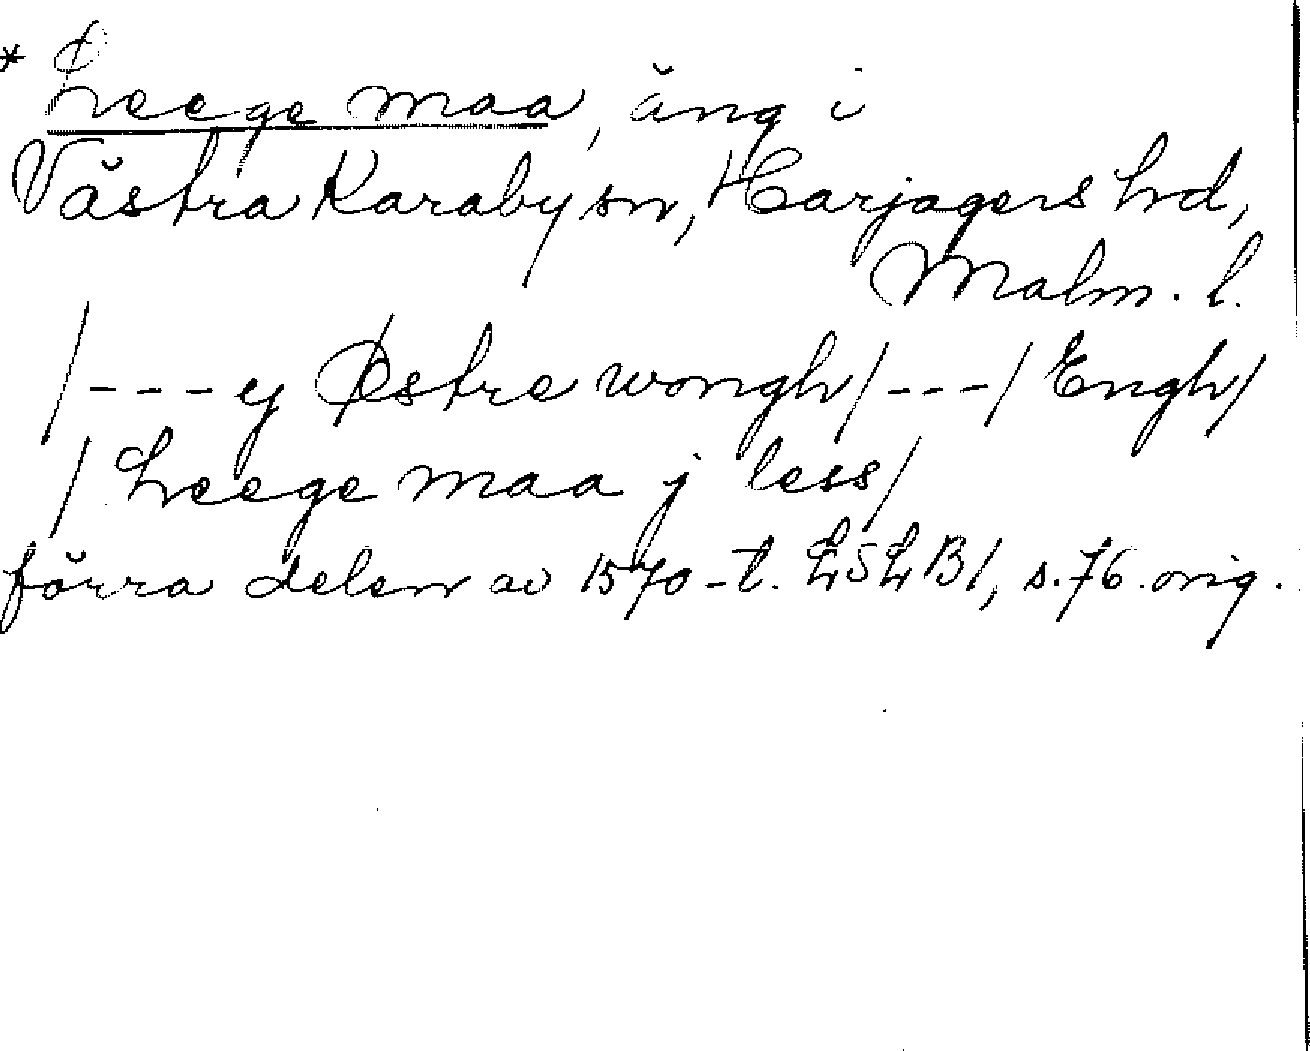 * Leege maa, äng i
Västra Karaby sn, Harjagers hd,
Malm. l.
/---y Østre wongh/---/Engh/
/Leege maa j less/
förra delen av 1570-t. LSLB1, s.76 orig.